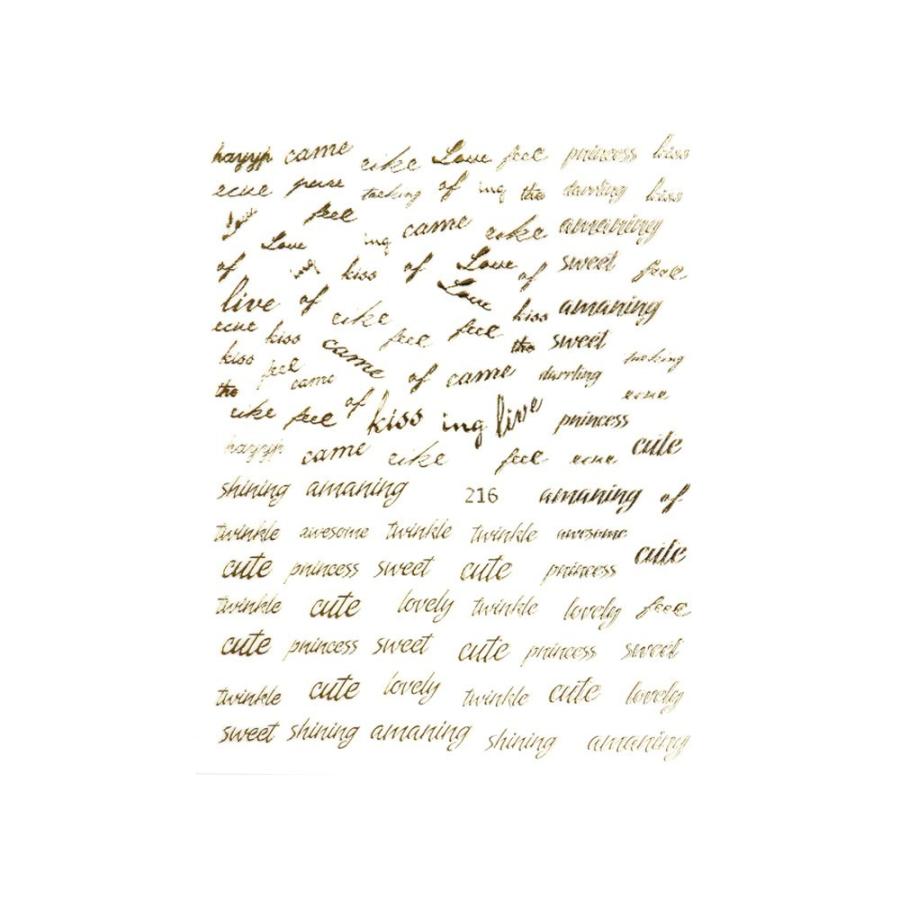 hayyp came eike Love feel princess kiss
ecue of ing the darrling kiss
feel came eike amaning
Love ing
of kiss of Love of sweet feel
live of eike Love kiss amaning
ecue kiss feel feel the sweet
kiss feel came of came darrling
the came
eike feel of kiss ing live princess
hayyp came eike feel cute
shining amaning 216 amaning of
twinkle awesome twinkle twinkle awesome
cute princess sweet cute princess cute
twinkle cute lovely twinkle lovely feel
cute princess sweet cute princess sweet
twinkle cute lovely twinkle cute lovely
sweet shining amaning shining amaning